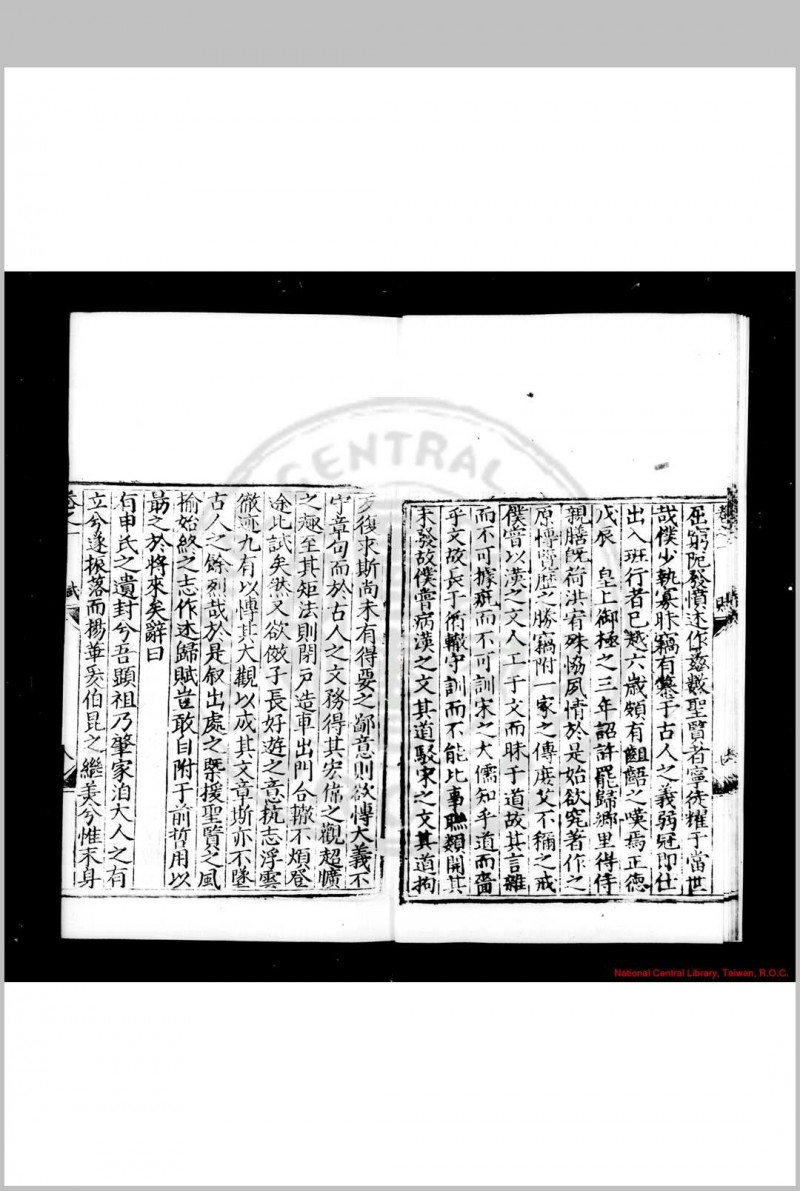 屈窮阨發憤述作茲數聖賢者寧徒擢于當世
哉僕少執篆時竊有纂于古人之義弱冠即仕
出入班行者已越六歲頗有齟齬之嘆焉正德
戊辰 皇上御極之三年詔許罷歸鄉里得侍
親膳既荷洪宥殊恊夙情於是始欲究著作之
原愽覽歷之勝竊附一家之傳庶艾不稱之戒
僕嘗以漢之文人工于文而昧于道故其言雜
而不可據疵而不可訓宋之大儒知乎道而嗇
乎文故長于術轍守訓而不能比事聯類開其
未發故僕嘗病漢之文其道駁宋之文其道拘
復求斯尚未有得要之鄙意則欲愽大義不
守章句而於古人之文務得其宏偉之觀超曠
之趣至其矩法則閉戶造車出門合轍不煩登
途比試矣然又欲倣子長好遊之意抗志浮雲
徼迹九有以愽其大觀以成其文章斯亦不墜
古人之餘烈哉於是叙出處之槩援聖賢之風
揄始終之志作述歸賦豈敢自附于前哲用以
勗之於將來矣辭曰
有申氏之遺封兮吾顯祖乃肇家洎大人之有
立兮遂掞落而揚華爰伯昆之繼美兮惟末身
卷之一
賦
CENTRAL
National Central Library, Taiwan, R.O.C.